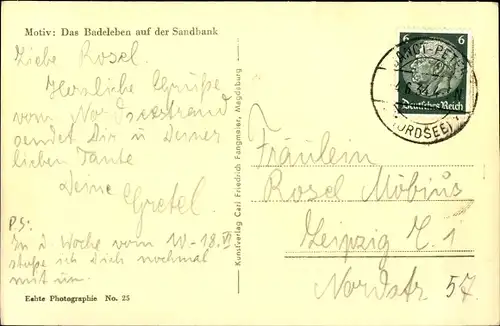 Motiv: Das Badeleben auf der Sandbank
Liebe Rosel.
Herzliche Grüße
vom Nordseestrand
sendet Dir u Deiner
lieben Tante
Deine
Gretel.
P.S.
In d. Woche vom 10-18.VI
ich Dich nochmal
mit
Echte Photographie No. 25
Kunstverlag Carl Friedrich Fangmeier, Magdeburg
6 6
Deutsches Reich
SANKT-PETER
(NORDSEE)
Fräulein
Rosel Möbius
Leipzig C. 1
Nordstr 57